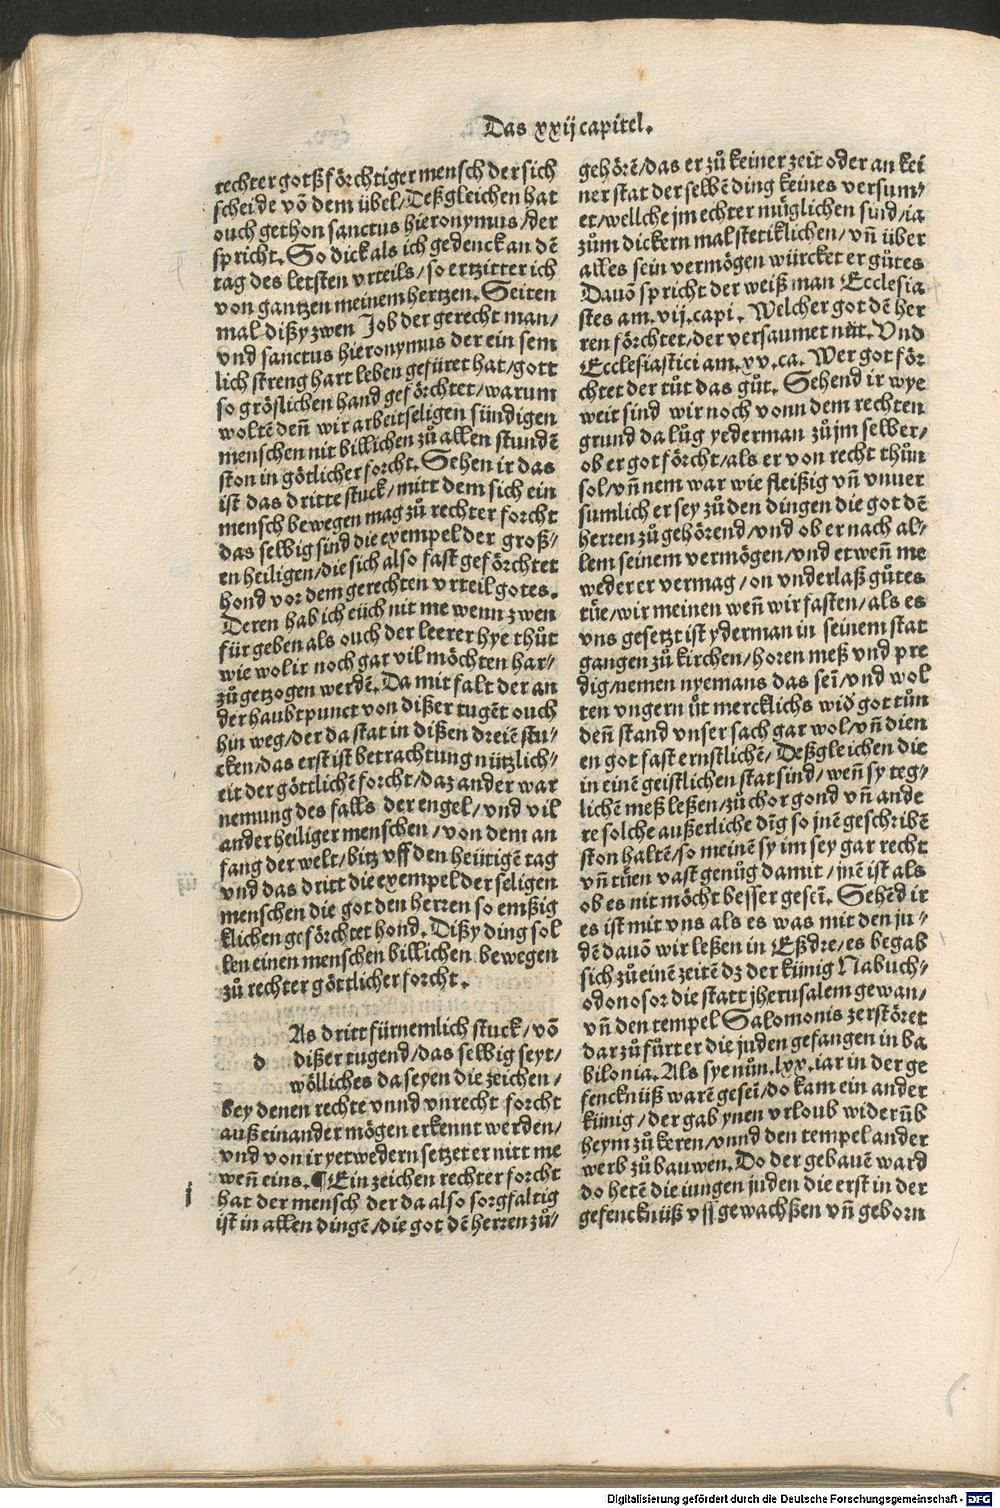 Das xxij capitel.
rechter gotßförchtiger mensch der sich
scheide võ dem übel/Deßgleichen hat
ouch gethon sanctus hieronymus/der
spricht. So dick als ich gedenck an dē
tag des letsten vrteils/so ertzitter ich
von gantzen meinem hertzen. Seiten
mal dißy zwen Job der gerecht man/
vnd sanctus hieronymus der ein sem
lich streng hart leben gefüret hat/gott
so gröslichen hand geförchtet/warum
woltē deñ wir arbeitseligen sündigen
menschen nit billichen zů allen stundē
ston in götlicher forcht. Sehen ir das
ist das dritte stuck/mitt dem sich ein
mensch bewegen mag zů rechter forcht
das selbig sind die exempel der groß-
en heiligen/die sich also fast geförchtet
hond vor dem gerechten vrteil gotes.
Deren hab ich eüch nit me wenn zwen
für geben als ouch der leerer hye thůt
wie wol ir noch gar vil möchten har-
zů getzogen werdē. Da mit falt der an
der haubtpunct von dißer tugēt ouch
hin weg/der da stat in dißen dreiē stu-
cken/das erst ist betrachtung nützlich-
eit der göttlichē forcht/daz ander war
nemung des falls der engel/vnd vil
ander heiliger menschen/von dem an
fang der welt/bitz vff den heütigē tag
vnd das dritt die exempel der seligen
menschen die got den herren so emßig
klichen geförchtet hond. Dißy ding sol
len einen menschen billichen bewegen
zů rechter göttlicher forcht.
d
As dritt fürnemlich stuck/võ
dißer tugend/das selbig seyt/
wölliches da seyen die zeichen/
bey denen rechte vnnd vnrecht forcht
auß einander mögen erkennt werden/
vnd von ir yetwedern setzet er nitt me
weñ eins. ¶Ein zeichen rechter forcht
hat der mensch der da also sorgfaltig
ist in allen dingē/die got dē herren zů-
i
gehörē/das er zů keiner zeit oder an kei
ner stat der selbē ding keines versum-
et/wellche jm echter müglichen sind/ia
zům dickern mal stetiklichen/vñ über
alles sein vermögen würcket er gůtes
Dauõ spricht der weiß man Ecclesia
stes am.vij.capi. Welcher got dē her
ren förchtet/der versaumet nüt. Vnd
Ecclesiastici am.xv.ca. Wer got för
chtet der tůt das gůt. Sehend ir wye
weit sind wir noch vonn dem rechten
grund da lůg yederman zů jm selber/
ob er got förcht/als er von recht thůn
sol/vñ nem war wie fleißig vñ vnuer
sumlich er sey zů den dingen die got dē
herren zů gehörend/vnd ob er nach al-
lem seinem vermögen/vnd etweñ me
weder er vermag/on vnderlaß gůtes
tüe/wir meinen weñ wir fasten/als es
vns gesetzt ist yderman in seinem stat
gangen zů kirchen/horen meß vnd pre
dig/nemen nyemans das sei/vnd wol
ten vngern üt mercklichs wið got tůn
deñ stand vnser sach gar wol/vñ dien
en got fast ernstlichē/Deßgleichen die
in einē geistlichen stat sind/weñ sy teg-
lichē meß leßen/zů chor gond vñ ande
re solche außerliche dīg so jnē geschribē
ston haltē/so meinē sy im sey gar recht
vñ tüen vast genůg damit/jnē ist als
ob es nit möcht besser gesei. Sehēd ir
es ist mit vns als es was mit den ju-
dē dauõ wir leßen in Eßdre/es begab
sich zů einē zeitē dz der künig Nabuch-
odonosor die statt jherusalem gewan/
vñ den tempel Salomonis zerstöret
dar zů fürt er die juden gefangen in ba
bilonia. Als sye nůn.lxx.iar in der ge
fencknüß warē gesei/do kam ein ander
künig/der gab ynen vrloub widerūb
heym zů keren/vnnd den tempel ander
werb zů bauwen. Do der gebauē ward
do hetē die iungen juden die erst in der
gefencknüß vff gewachßen vñ geborn
Digitalisierung gefördert durch die Deutsche Forschungsgemeinschaft - DFG